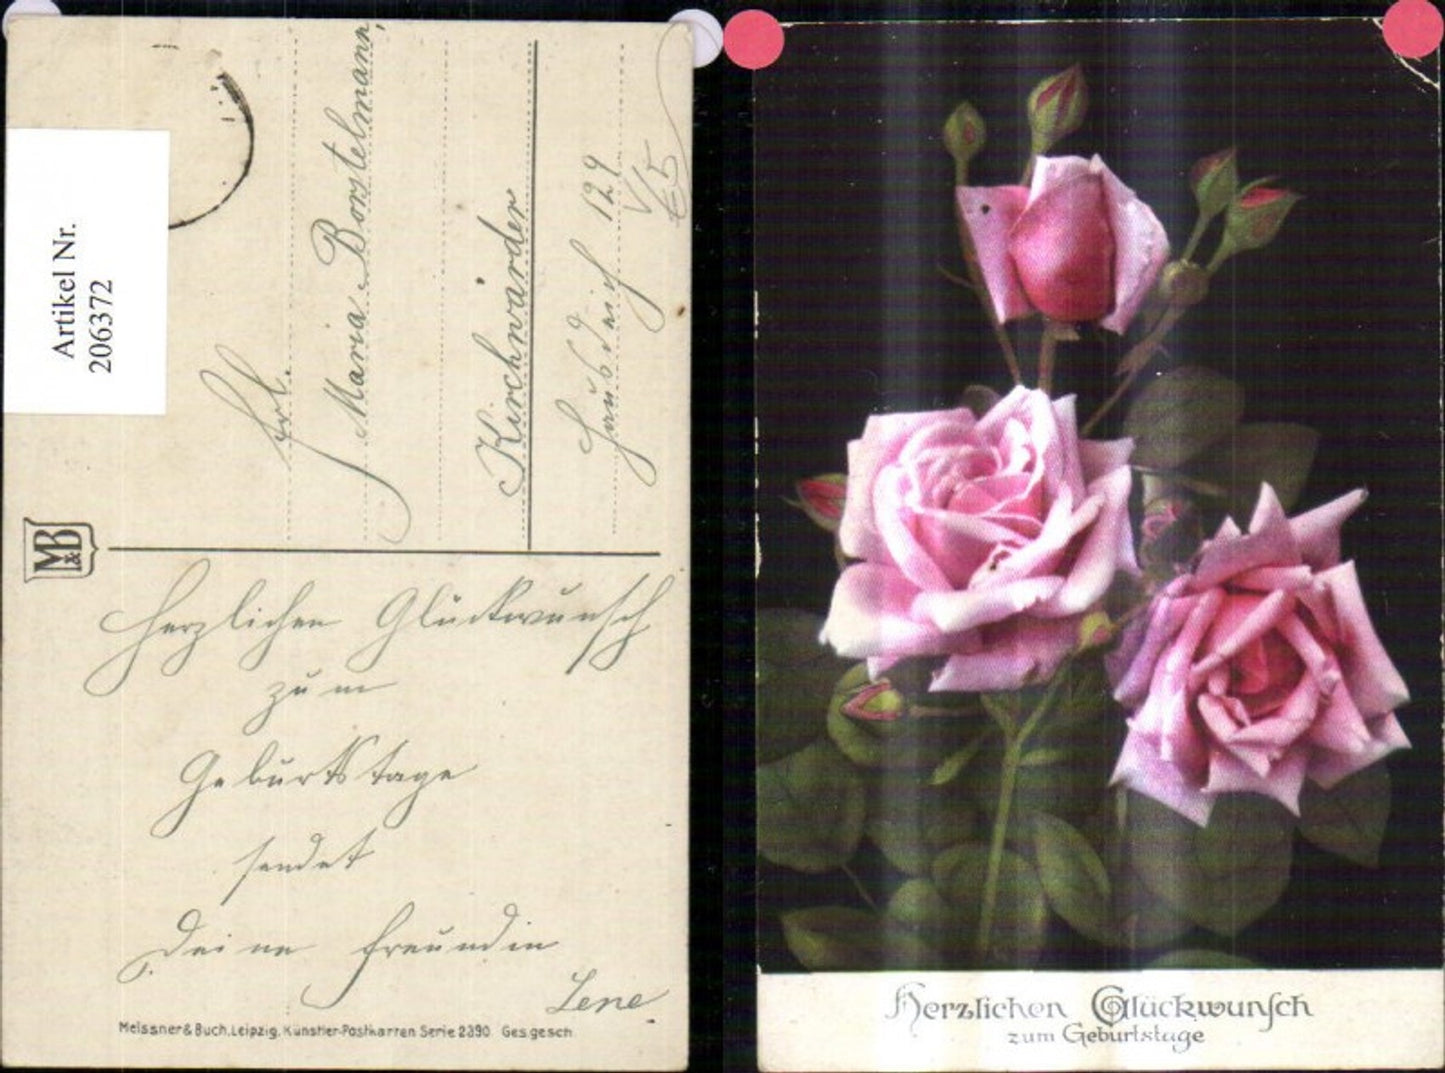 Artikel Nr.
206372
Frl.
Maria Borstelmann,
Kirchwärder
Hausdeich 129
M&B
Herzlichen Glückwunsch
zum
Geburtstage
sendet
Deine Freundin
Lene.
Meissner & Buch, Leipzig, Künstler-Postkarten Serie 2390 Ges. gesch.
Herzlichen Glückwunsch
zum Geburtstage